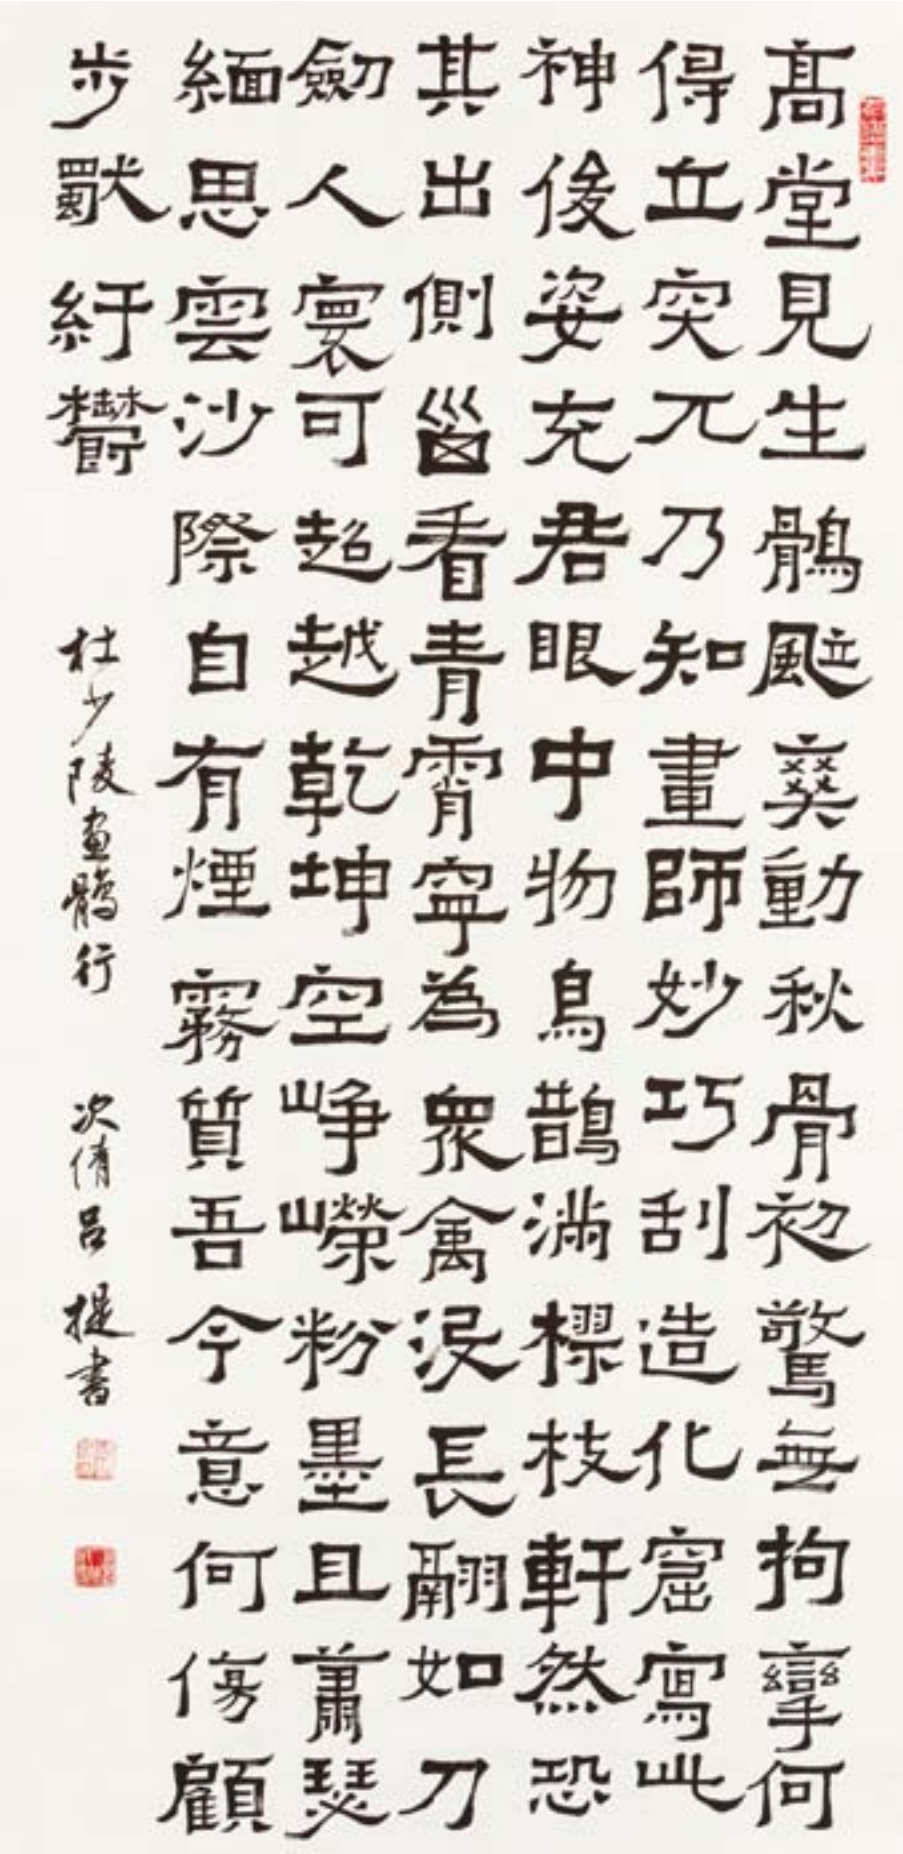 髙堂見生鶻颯爽動秋骨初驚無拘攣何
得立突兀乃知畫師妙巧刮造化窟寫此
神俊姿充君眼中物烏鵲滿樛枝軒然恐
其出側腦看青霄寧為眾禽沒長翮如刀
劒人寰可超越乾坤空崢嶸粉墨且蕭瑟
緬思雲沙際自有煙霧質吾今意何傷顧
步獨紆鬱 杜少陵畫鶻行 次倩呂提書